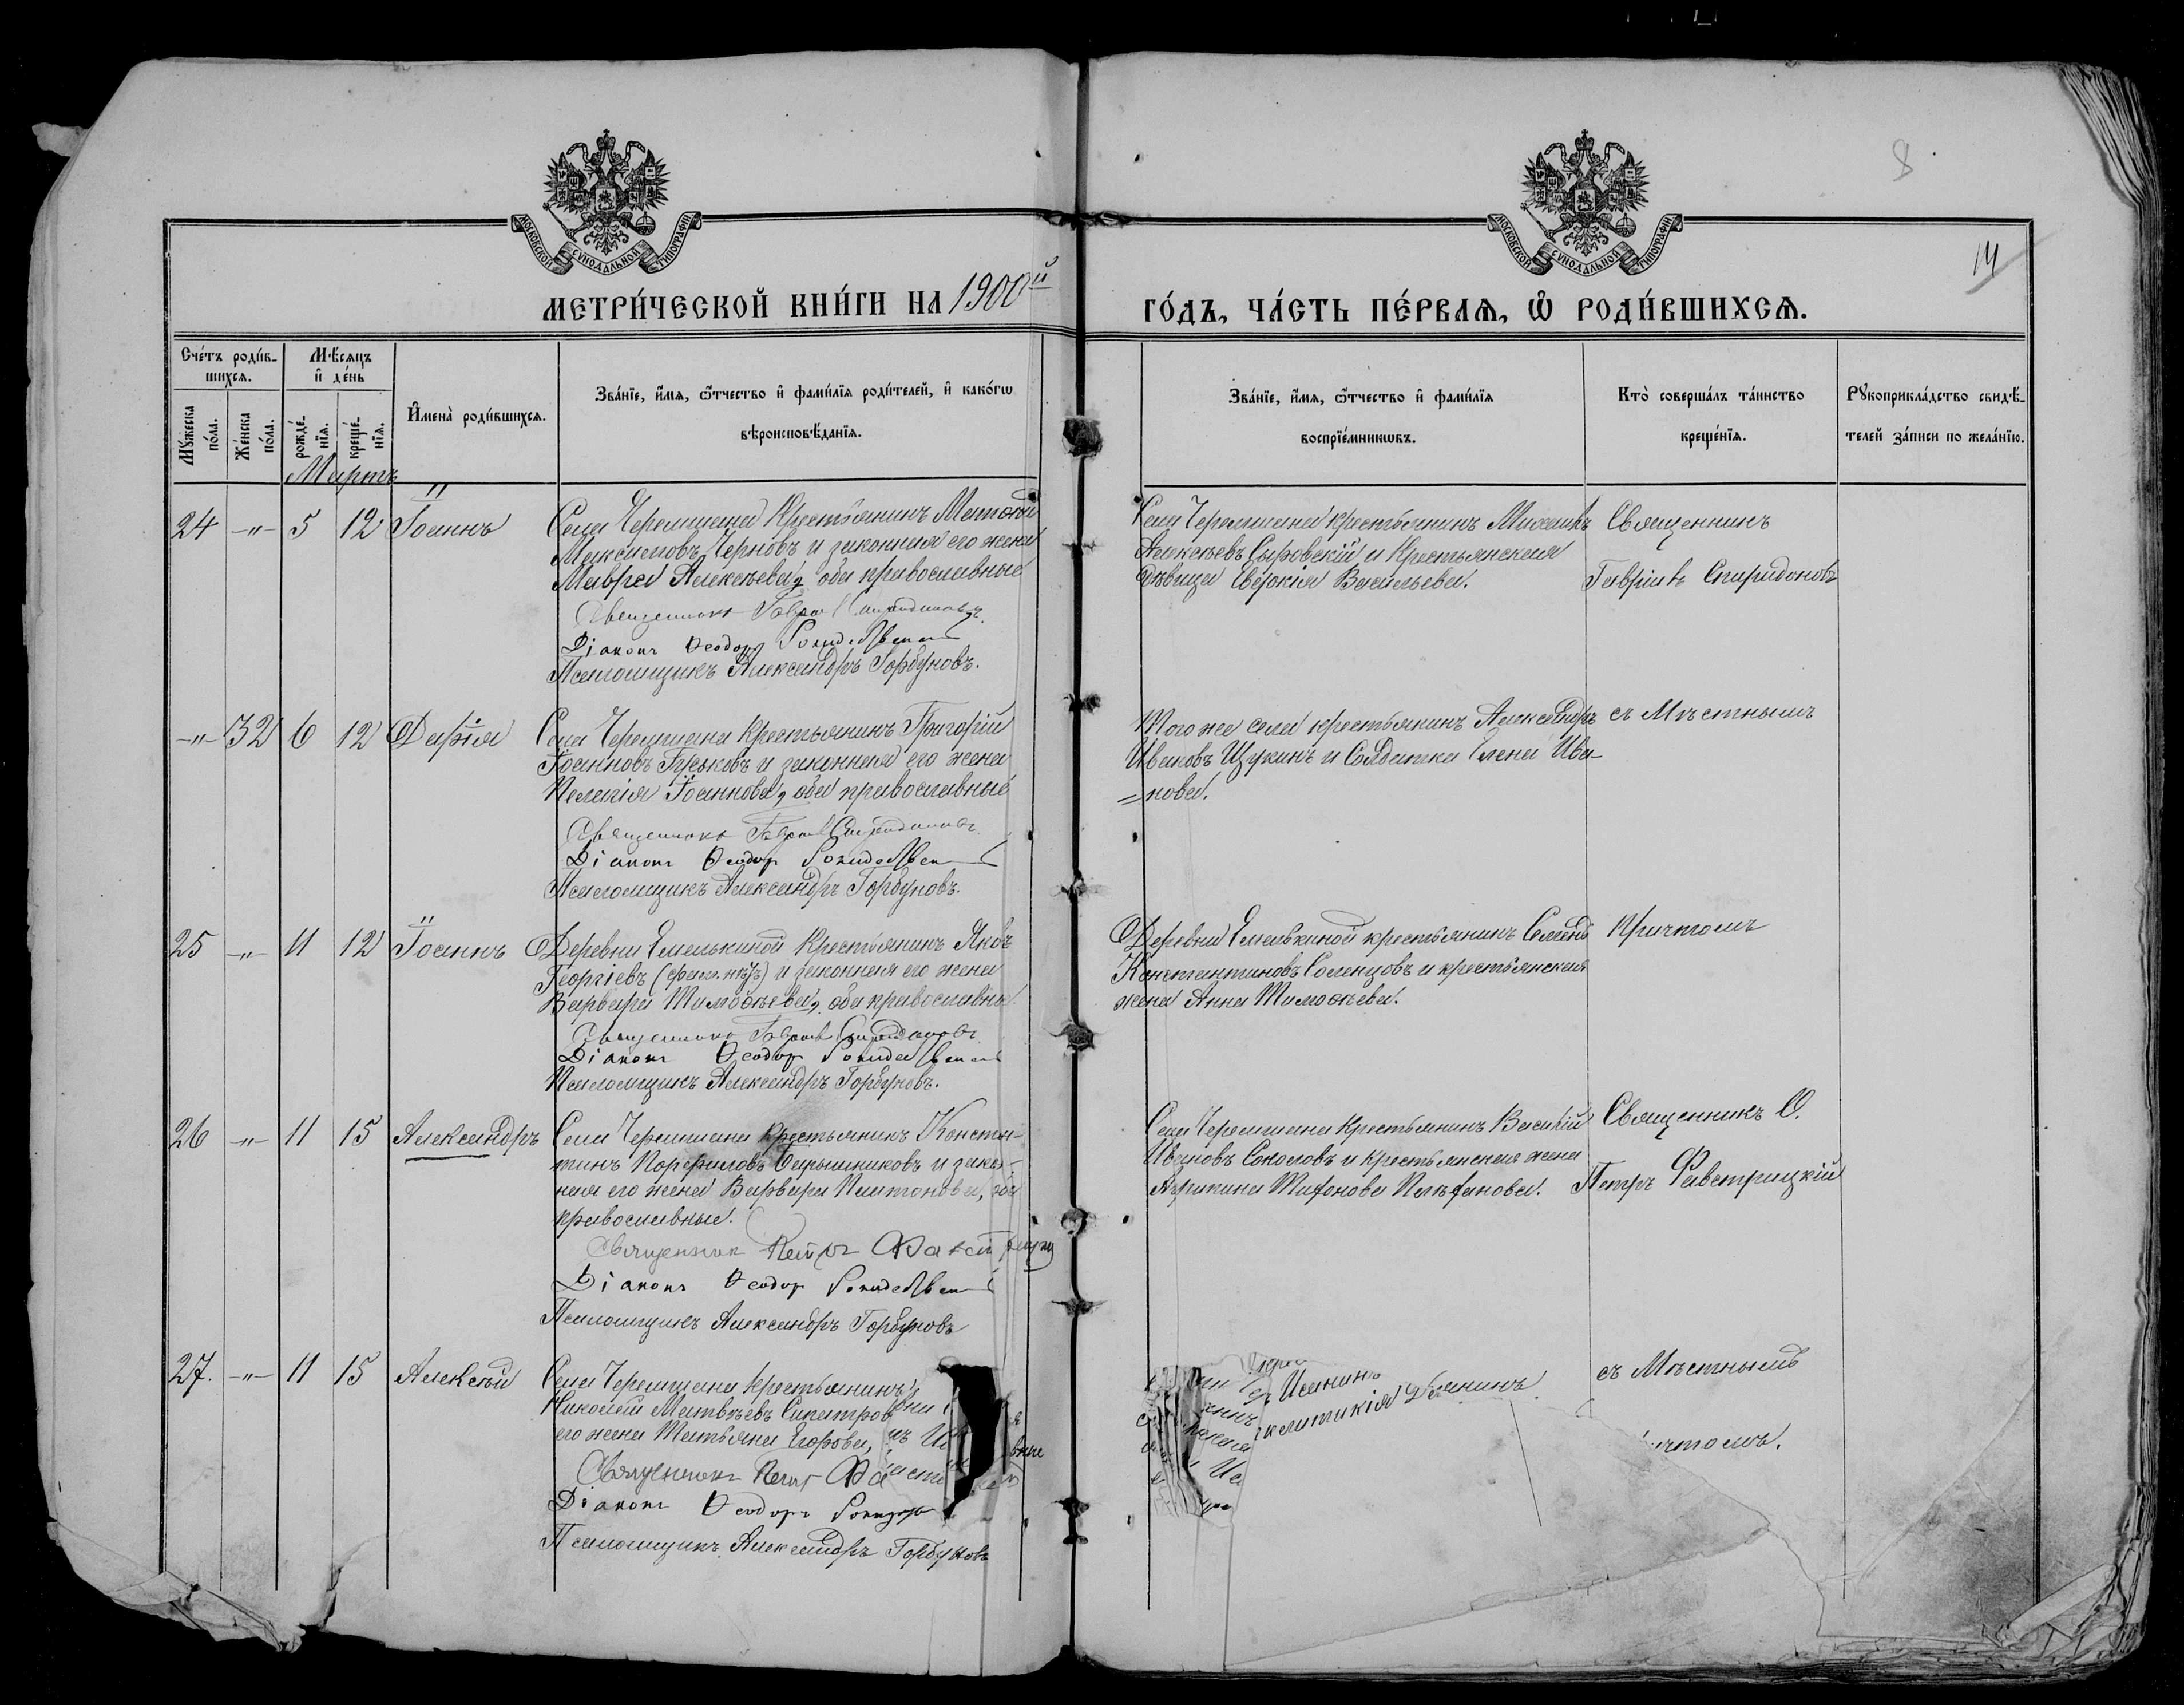 8
14
МОСКОВСКОЙ СѴНОДАЛЬНОЙ ТИПОГРАФІИ
МОСКОВСКОЙ СѴНОДАЛЬНОЙ ТИПОГРАФІИ
МЕТРИ́ЧЕСКОЙ КНИ́ГИ НА 1900й ГО́ДЪ, ЧА́СТЬ ПЕ́РВАѦ, Ѽ РОДИ́ВШИХСѦ.
Сче́тъ роди́в-
шихсѧ.
Мꙋжеска по́ла.
Же́нска по́ла.
Мѣ́сѧцъ
и҆ де́нь
рожде́-
нїѧ.
креще́-
нїѧ.
И҆мена̀ роди́вшихсѧ.
Зва́нїе, и҆́мѧ, ѻ҆́тчество и҆ фами́лїѧ роди́телей, и҆ како́гѡ
вѣроисповѣ́данїѧ.
Зва́нїе, и҆́мѧ, ѻ҆́тчество и҆ фами́лїѧ
воспрїе́мникѡвъ.
Кто̀ соверша́лъ та́инство
креще́нїѧ.
Рꙋкоприкла́дство свидѣ́-
телей за́писи по жела́нїю.
Мартъ
24 -"- 5 12 Іоаннъ
Села Черемшана Крестьянинъ
Максимовъ Черновъ и законная его жена
Мавра Алексѣева, оба православные
Священникъ Гавріилъ Спиридоновъ.
Діаконъ Ѳеодоръ
Псаломщикъ Александръ Горбуновъ.
Села Черемшана крестьянинъ Михаилъ
Алексѣевъ Сыровскій и Крестьянская
дѣвица Евдокія Васильева.
Священникъ
Гавріилъ Спиридоновъ
-"- 32 6 12 Дарія
Села Черемшана Крестьянинъ Григорій
Іоанновъ Гуськовъ и законная его жена
Пелагія Іоаннова, оба православные
Священникъ Гавріилъ Спиридоновъ
Діаконъ Ѳеодоръ
Псаломщикъ Александръ Горбуновъ.
Того же села крестьянинъ Александръ
Ивановъ Щукинъ и Солдатка Елена Ива-
=нова.
съ Мѣстнымъ
25 -"- 11 12 Іоаннъ
Деревни Емелькиной Крестьянинъ Яковъ
Георгіевъ (фам. нѣтъ) и законная его жена
Варвара Тимоѳѣева, оба православны.
Священникъ Гавріилъ Спиридоновъ
Діаконъ Ѳеодоръ
Псаломщикъ Александръ Горбуновъ.
Деревни Емелькиной крестьянинъ Семенъ
Константиновъ Соленцовъ и крестьянская
жена Анна Тимоѳѣева.
Причтомъ
26 -"- 11 15 Александръ
Села Черемшана Крестьянинъ Конста-
тинъ Порфиловъ и зако-
ная его жена Варвара Платонова, оба
православные.
Священникъ Петръ
Діаконъ Ѳеодоръ
Псаломщикъ Александръ Горбуновъ
Села Черемшана Крестьянинъ Василій
Ивановъ Соколовъ и крестьянская жена
Агрипина
Священникъ О.
Петръ Фавстрицкій
27. -"- 11 15 Алексѣй
Села Черемшана Крестьянинъ
Николай Матвѣевъ
его жена Татьяна Егорова,
Священникъ Петръ
Діаконъ Ѳеодоръ
Псаломщикъ Александръ Горбуновъ
съ Мѣстнымъ